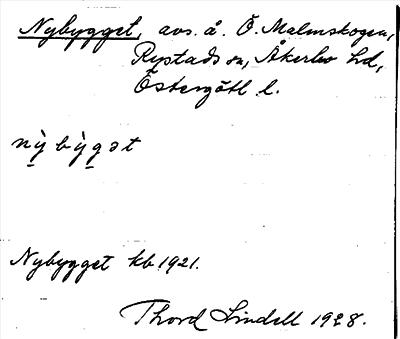 Nybygget, avs. å. Ö. Malmskogen,
Rystads sn, Åkerbo hd,
Östergötl l.
nỳ bỳgət
Nybygget kb 1921.
Thord Lindell 1928.